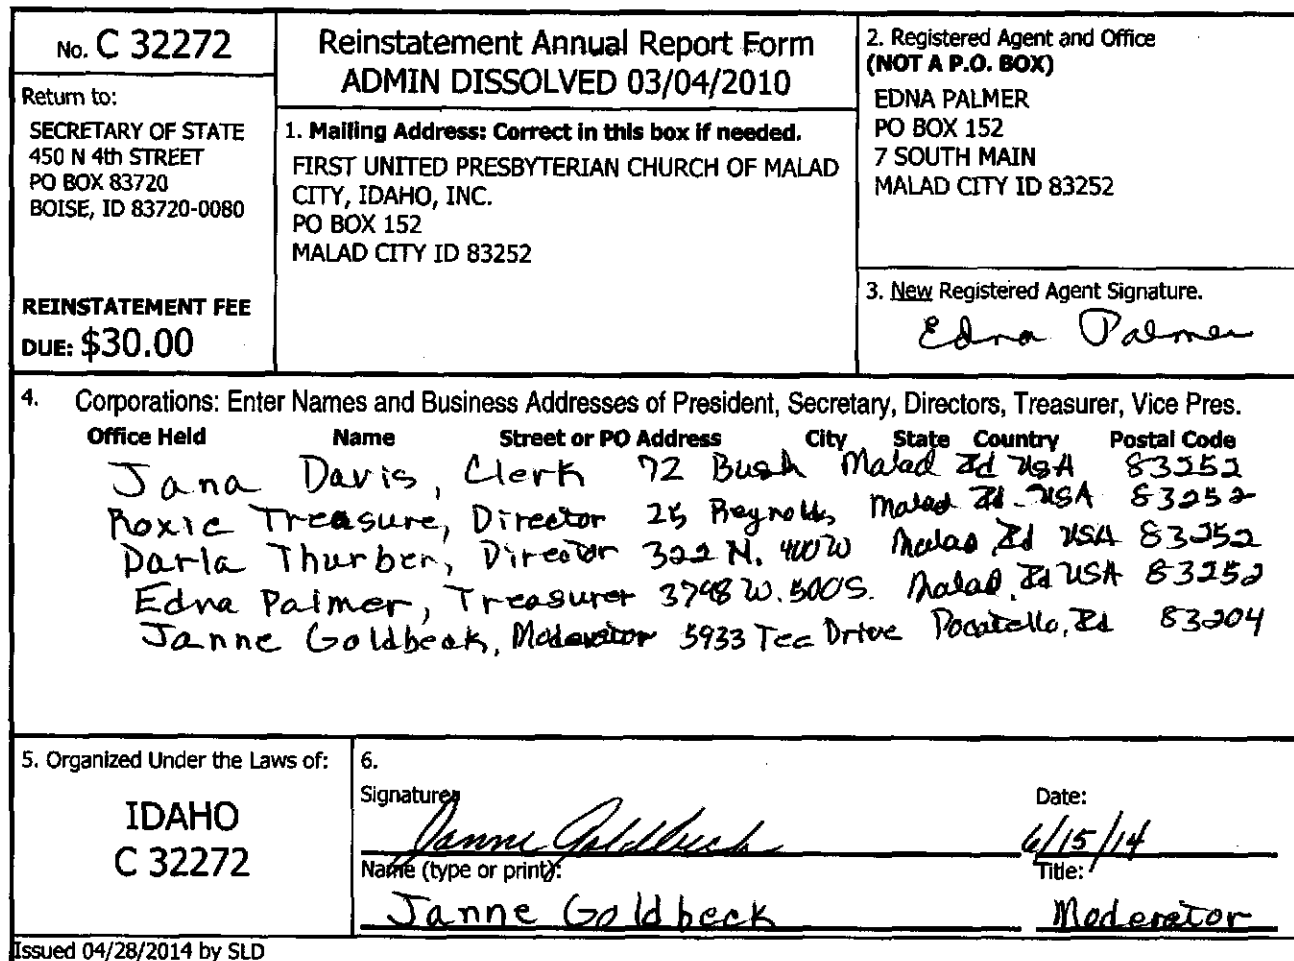 No. C 32272
Return to:
SECRETARY OF STATE
450 N 4th STREET
PO BOX 83720
BOISE, ID 83720-0080
REINSTATEMENT FEE
DUE: $30.00
Reinstatement Annual Report Form
ADMIN DISSOLVED 03/04/2010
1. Mailing Address: Correct in this box if needed.
FIRST UNITED PRESBYTERIAN CHURCH OF MALAD
CITY, IDAHO, INC.
PO BOX 152
MALAD CITY ID 83252
2. Registered Agent and Office
(NOT A P.O. BOX)
EDNA PALMER
PO BOX 152
7 SOUTH MAIN
MALAD CITY ID 83252
3. New Registered Agent Signature.
Edna Palmer
4. Corporations: Enter Names and Business Addresses of President, Secretary, Directors, Treasurer, Vice Pres.
Office Held Name Street or PO Address City State Country Postal Code
Jana Davis, Clerk 72 Bush Malad Id USA 83252
Roxie Treasure, Director 25 Reynolds Malad Id. USA 83252
Darla Thurber, Director 322 N. 400 W Malad Id USA 83252
Edna Palmer, Treasurer 3798 W. 500 S. Malad, Id USA 83252
Janne Goldbeck, Moderator 5933 Tee Drive Pocatello, Id 83204
5. Organized Under the Laws of:
IDAHO
C 32272
6.
Signature:
Janne Goldbeck
Date:
6/15/14
Name (type or print):
Janne Goldbeck
Title:
Moderator
Issued 04/28/2014 by SLD